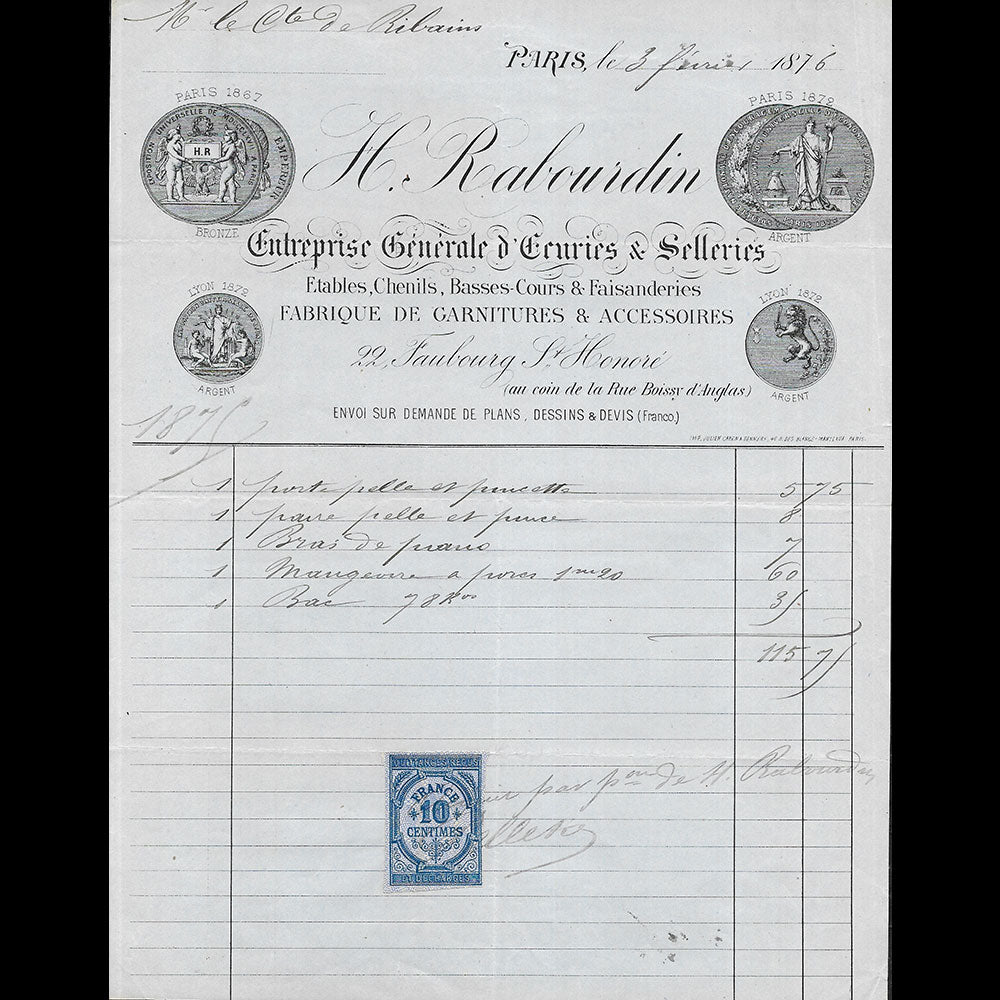 Mr le Cte de Ribains
PARIS, le 3 février 1876
PARIS 1867
EXPOSITION UNIVERSELLE DE MDCCCLXVII A PARIS
H.R
EMPEREUR
BRONZE
PARIS 1872
ARGENT
H. Rabourdin
Entreprise Générale d'Ecuries & Selleries
Etables, Chenils, Basses-Cours & Faisanderies
FABRIQUE DE GARNITURES & ACCESSOIRES
LYON 1872
ARGENT
LYON 1872
ARGENT
22, Faubourg St Honoré
(au coin de la Rue Boissy d'Anglas)
ENVOI SUR DEMANDE DE PLANS, DESSINS & DEVIS (Franco.)
1875
1 porte pelle et pincette 5 75
1 paire pelle et pince 8
1 Bras de piano 7
1 Mangeoire a porcs 1m20 60
1 Bac 78Kos 35
115 75
QUITTANCES REÇUS
FRANCE
10
CENTIMES
ET DÉCHARGES
par pon de H. Rabourdin